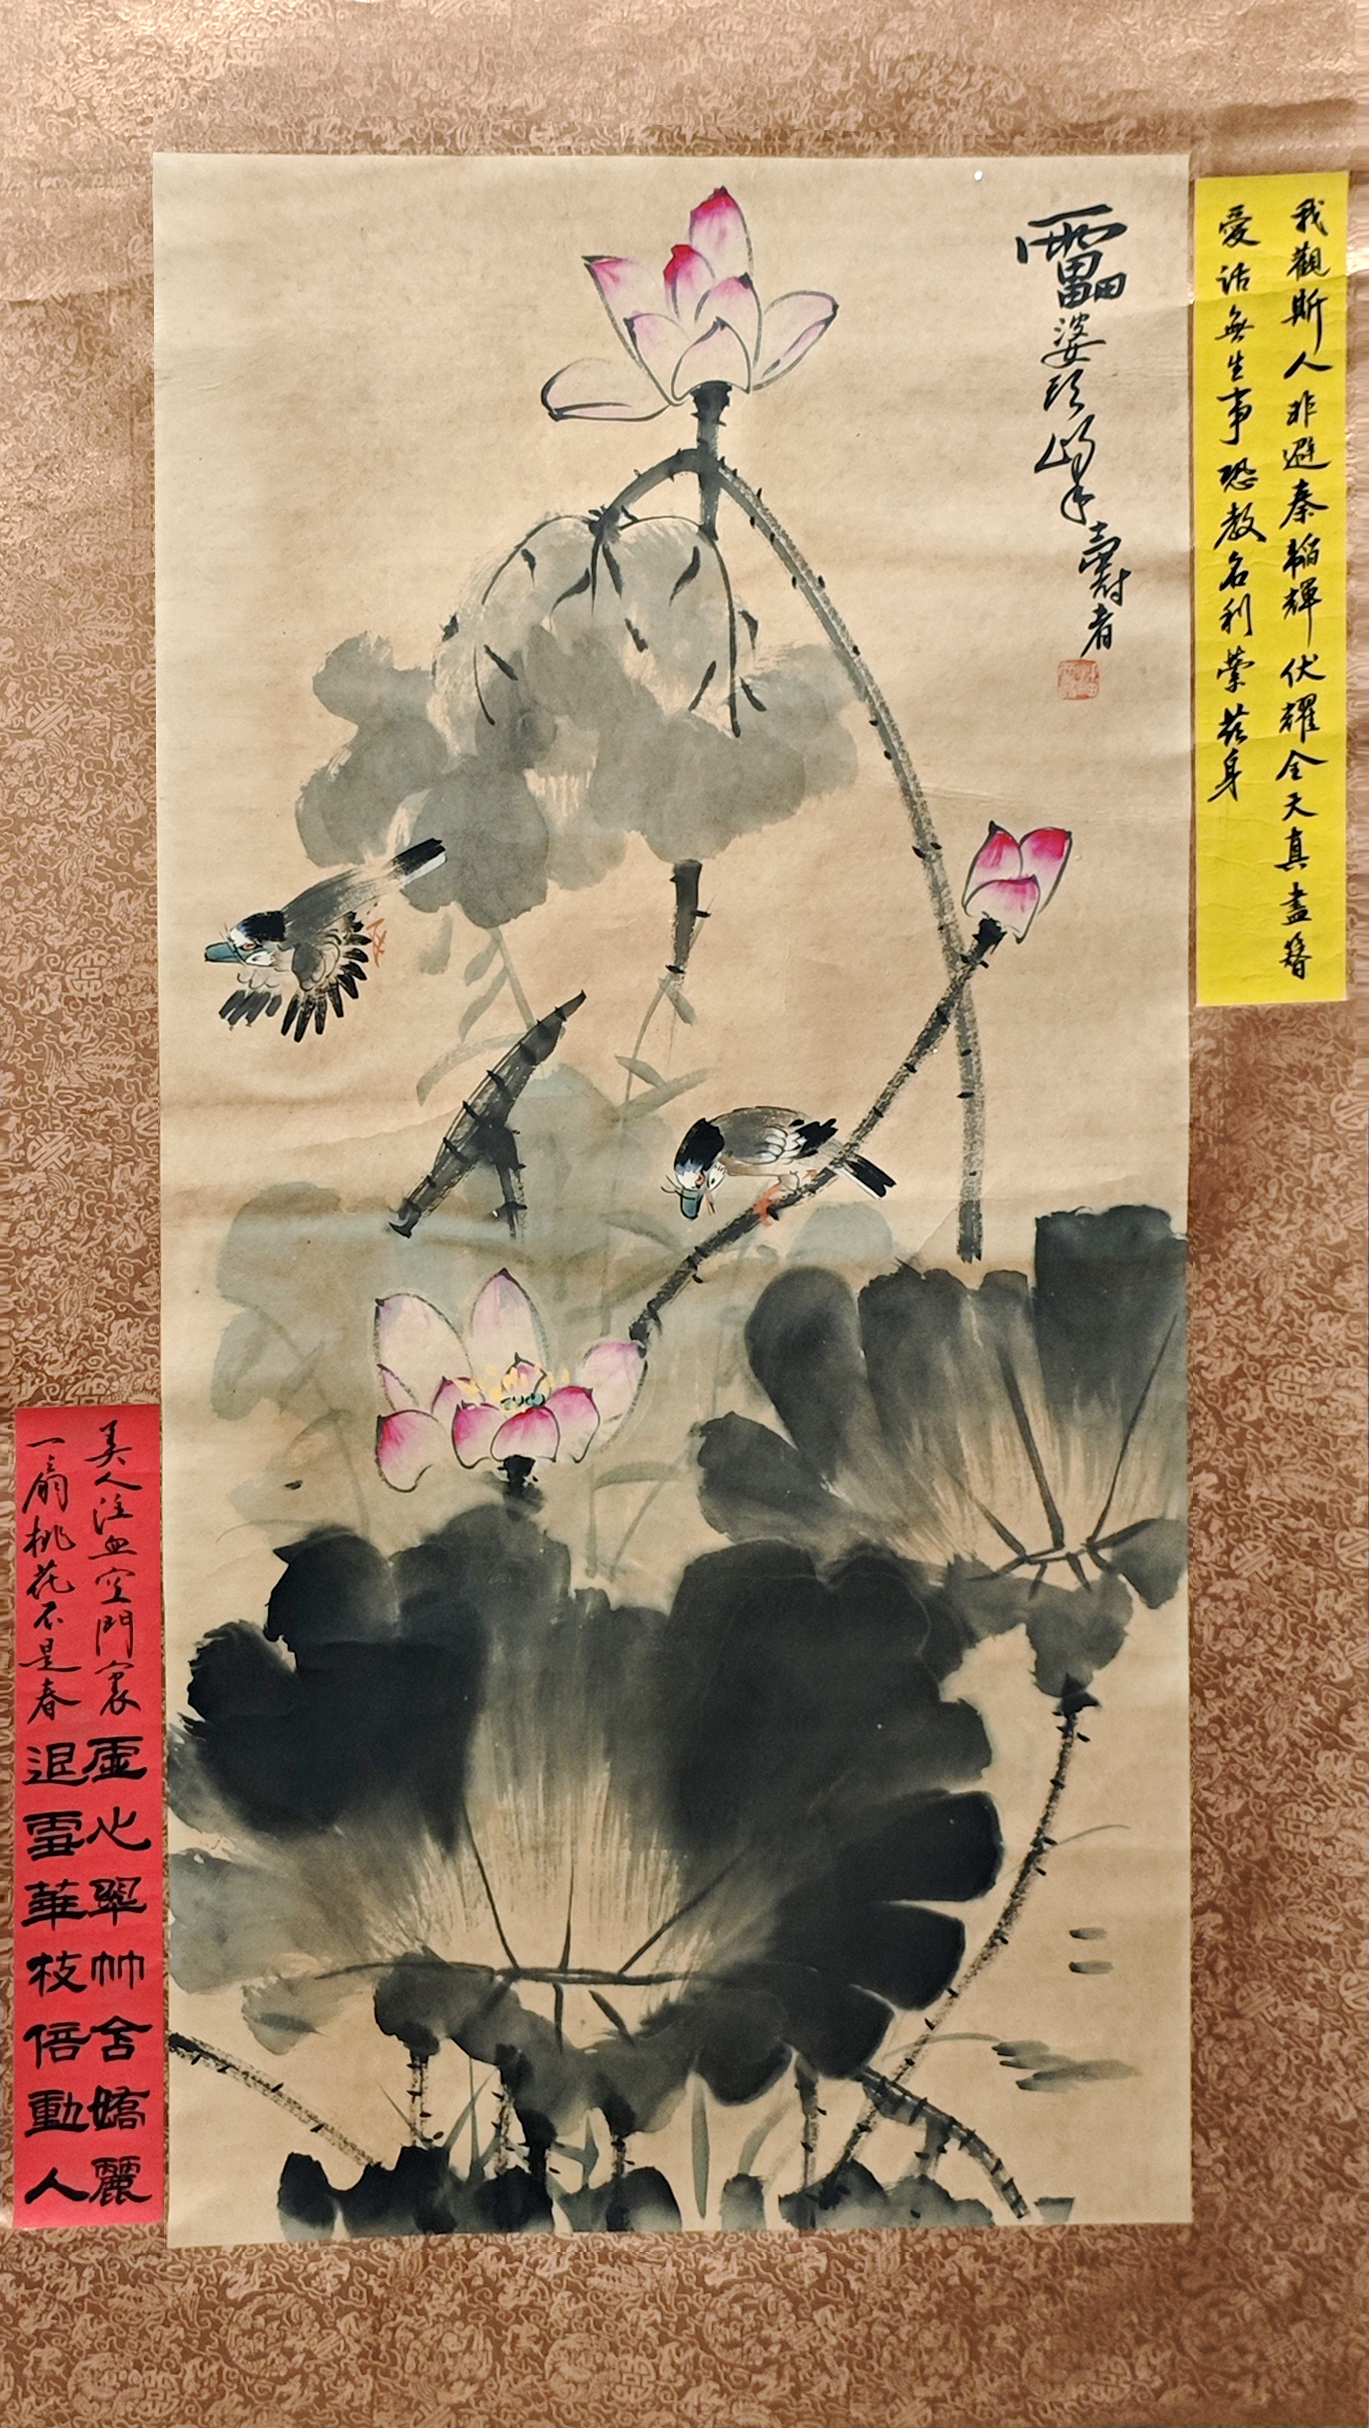 我觀斯人非避秦韜輝伏耀全天真盡簪
愛話無生事恐教名利縈身
靁婆頭峰壽者
美人注血空門裏
一扇桃花不是春
虛心翠竹含嬌麗
退雪華枝倍動人